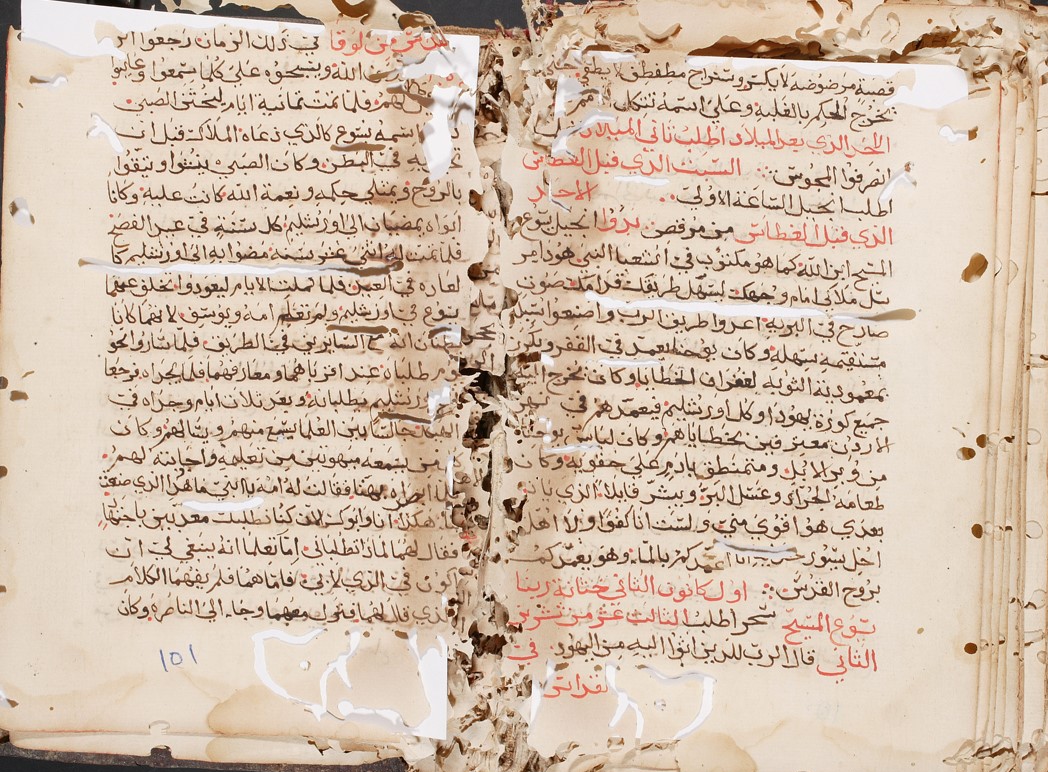 قصبة مرضوضة لا يكسر وسراج مطفطق لا يطفى حتى
يخرج الحكم بالغلبة وعلى اسمه تتكل الامم
الاحد الذي بعد الميلاد اطلب ثاني الميلاد
انصرفوا المجوس السبت الذي قبل الغطاس
اطلب انجيل الساعة الاولى الاحد
الذي قبل الغطاس من مرقص بدوا انجيل يسوع
المسيح ابن الله كما هو مكتوب في اشعيا النبي هوذا
مرسل ملاكي امام وجهك ليسهل طريقك قدامك صوت
صارخ في البرية اعدوا طريق الرب واصنعوا سبله
مستقيمه سهله وكان يوحنا يعمد في القفر ويكرز
بمعمودية التوبه لغفران الخطايا وكان يخرج اليه
جميع كورة يهودا وكل اورشليم فيعمدهم في نهر
الاردن معترفين بخطاياهم وكان لباس يوحنا
من وبر الابل ومتمنطق بادم على حقويه وكان
طعامه الجراد وعسل البر وبشر قايلا الذي ياتي
بعدي هو اقوى مني ولست انا كفوا ولا اهلا
احل سيور انا اعمدكم بالماء وهو يعمدكم
بروح القدس اول كانون الثاني ختانة ربنا
يسوع المسيح سحر اطلب الثالث عشر من تشرين
الثاني قال الرب للذين اتوا اليه من اليهود في
لقداس
من لوقا في ذلك الزمان رجعوا
الله ويسبحوه على كلما سمعوا وعاينوا
لهم فلما تمت ثمانية ايام ليختتن الصبي
اسمه يسوع كالذي دعاه الملاك قبل ان
به في البطن وكان الصبي ينشوا ويتقوا
بالروح ويمتلي حكمه ونعمة الله كانت عليه وكانا
ابواه يمضيان الى اورشليم كل سنه في عيد الفصح
فلما تمت له اثني عشر سنه مضوا به الى اورشليم
لعاده في العيد فلما كملت الايام ليعودوا تخلف عنهما
يسوع في اورشليم ولم تعلم امه ويوسف لانهما كانا
يظنان انه مع السايرين في الطريق فلما ساروا نحو
يوم طلباه عند اقربايهما ومعارفهما فلم يجداه فرجعا
اورشليم يطلبانه وبعد ثلاث ايام وجداه في
الهيكل جالسا بين العلما يسمع منهم ويسالهم وكان
من يسمعه مبهوتين من تعلمه واجابته لهم
فقالت له امه يا ابني ما هذا الذي صنعت
هكذا انا وابوك كنا نطلبك معذبين
فقال لهما لماذا تطلباني اما تعلما انه ينبغي لي ان
اكون في الذي لابي فاما هما فلم يفهما الكلام
الذي قال لهما فنزل معهما وجاء الى الناصره وكان
101